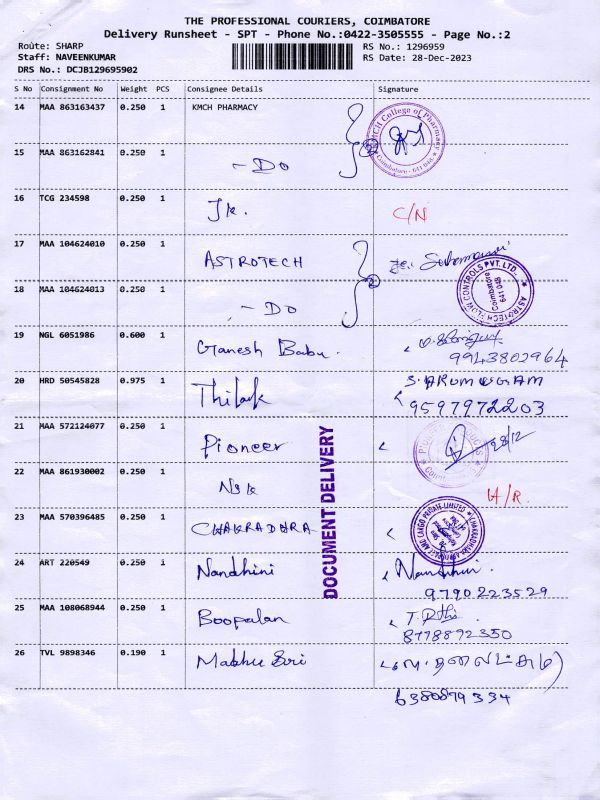 THE PROFESSIONAL COURIERS, COIMBATORE
Delivery Runsheet - SPT - Phone No.:0422-3505555 - Page No.:2
Route: SHARP
RS No.: 1296959
Staff: NAVEENKUMAR
RS Date: 28-Dec-2023
DRS No.: DCJB129695902
S No Consignment No Weight PCS Consignee Details Signature
14 MAA 863163437 0.250 1 KMCH PHARMACY
College of Pharmacy
Coimbatore - 641 048
15 MAA 863162841 0.250 1 - DO
16 TCG 234598 0.250 1 Jk. C/N
17 MAA 104624010 0.250 1 ASTROTECH
ASTROTECH FLOW CONTROLS PVT. LTD.
Coimbatore 641 048
18 MAA 104624013 0.250 1 - DO
19 NGL 6051986 0.600 1 Ganesh Babu.
9943802964
20 HRD 50545828 0.975 1 Thilak S. ARUMUGAM
9597972203
21 MAA 572124077 0.250 1 Pioneer 28/12
DOCUMENT DELIVERY
22 MAA 861930002 0.250 1 Nsk H/R.
23 MAA 570396485 0.250 1 CHAKRADHARA
AND CARGO PRIVATE LIMITED
24 ART 220549 0.250 1 Nandhini Nandhini
9790223529
25 MAA 108068944 0.250 1 Boopalan
8778892350
26 TVL 9898346 0.190 1 Madhu Sri
6380879334